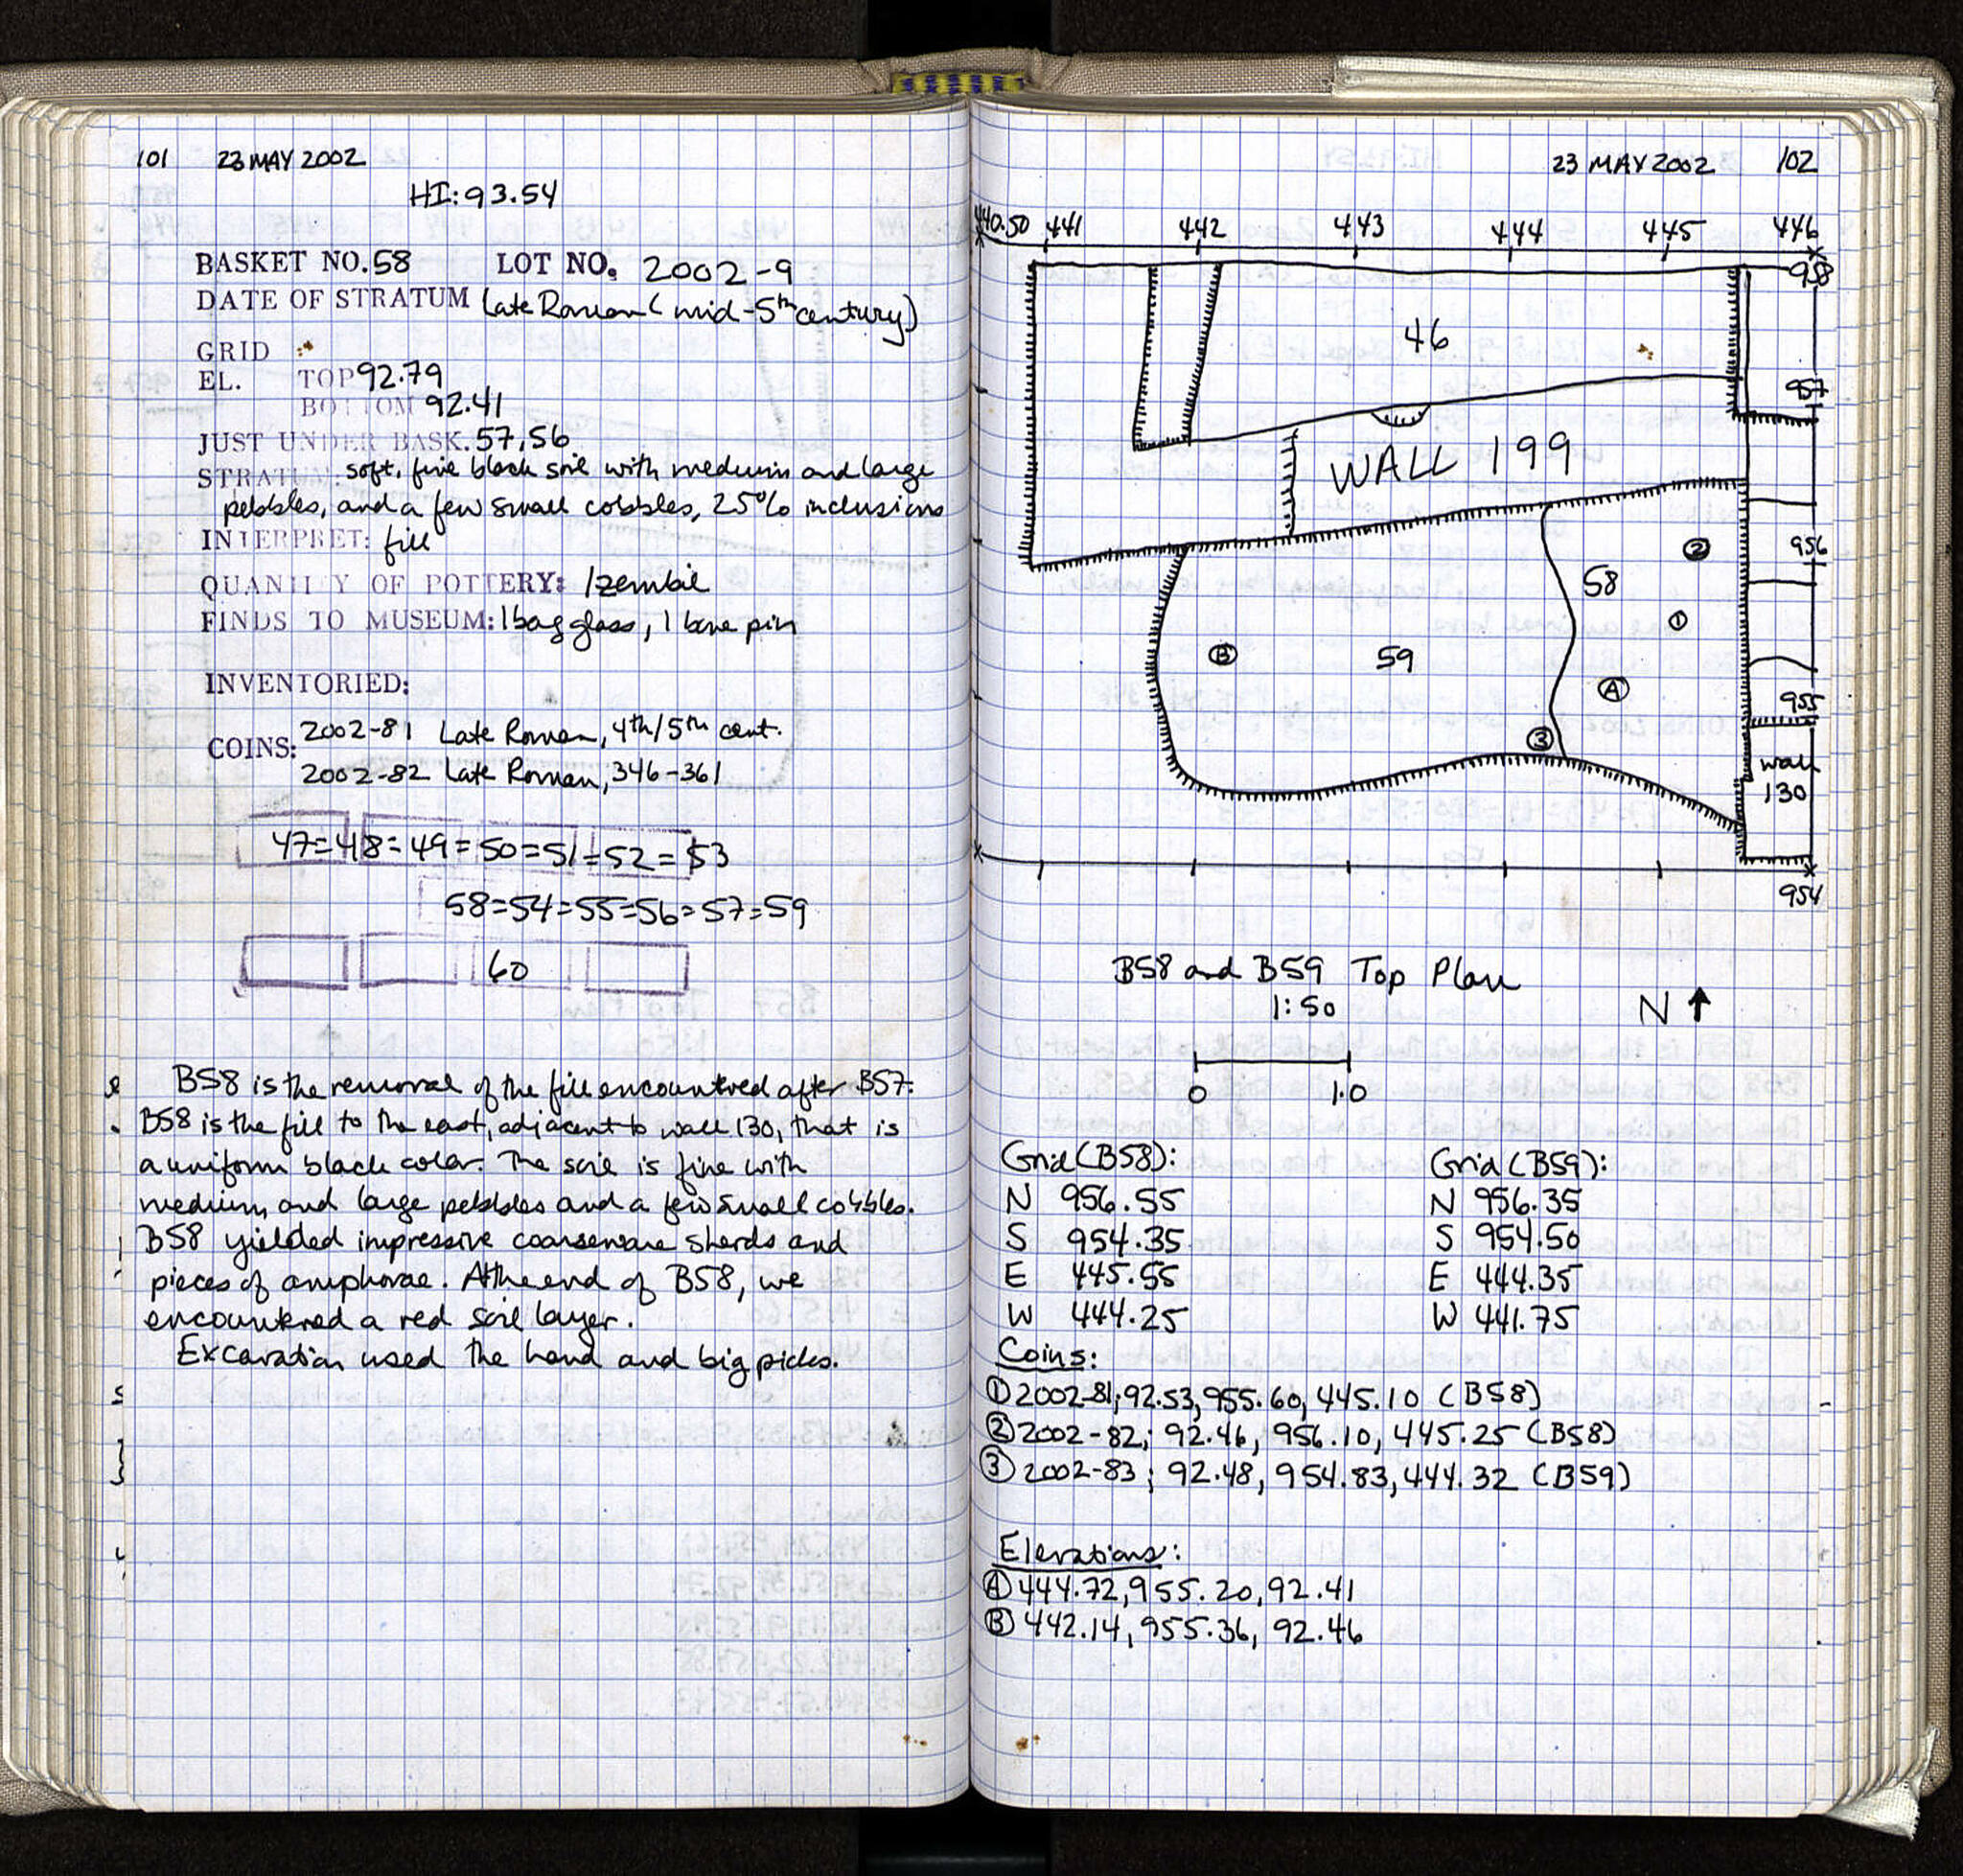 101 23 MAY 2002
HI: 93.54
BASKET NO. 58 LOT NO. 2002-9
DATE OF STRATUM Late Roman (mid-5th century)
GRID :
EL. TOP 92.79
BOTTOM 92.41
JUST UNDER BASK. 57, 56
STRATUM: soft, fine black soil with medium and large
pebbles, and a few small cobbles, 25% inclusions
INTERPRET: fill
QUANTITY OF POTTERY: 1 zembil
FINDS TO MUSEUM: 1 bag glass, 1 bone pin
INVENTORIED:
COINS: 2002-81 Late Roman, 4th/5th cent.
2002-82 Late Roman, 346-361
47=48=49=50=51=52=53
58=54=55=56=57=59
60
B58 is the removal of the fill encountred after B57.
B58 is the fill to the east, adjacent to wall 130, that is
a uniform black color. The soil is fine with
medium and large pebbles and a few small cobbles.
B58 yielded impressive coarseware sherds and
pieces of amphorae. At the end of B58, we
encountered a red soil layer.
Excavation used the hand and big picks.
23 MAY 2002 102
440.50 441 442 443 444 445 446
958
46
957
WALL 199
956
2
58
1
B
59
A
955
3
wall
130
954
B58 and B59 Top Plan
1:50
N ↑
0 1.0
Grid (B58): Grid (B59):
N 956.55 N 956.35
S 954.35 S 954.50
E 445.55 E 444.35
W 444.25 W 441.75
Coins:
① 2002-81; 92.53, 955.60, 445.10 (B58)
② 2002-82; 92.46, 956.10, 445.25 (B58)
③ 2002-83; 92.48, 954.83, 444.32 (B59)
Elevations:
Ⓐ 444.72, 955.20, 92.41
Ⓑ 442.14, 955.36, 92.46